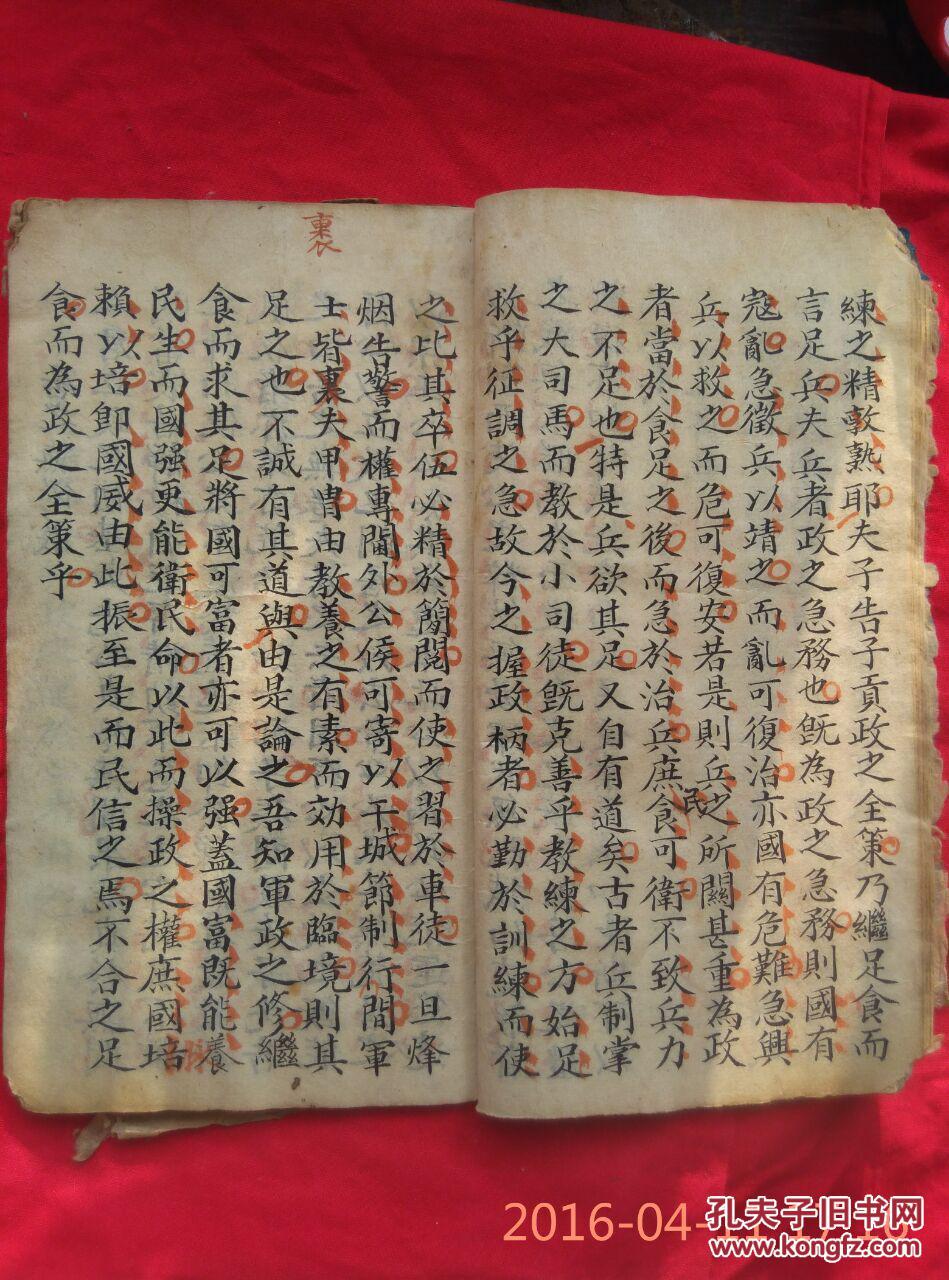 練之精敦孰耶夫子告子貢政之全策乃繼足食而
言足兵夫兵者政之急務也既為政之急務則國有
寇亂急徵兵以靖之而亂可復治亦國有危難急興
兵以救之而危可復安若是則兵之民所關甚重為政
者當於食足之後而急於治兵庶食可衛不致兵力
之不足也特是兵欲其足又自有道矣古者兵制掌
之大司馬而教於小司徒既克善乎教練之方始足
救乎征調之急故今之握政柄者必勤於訓練而使
之比其卒伍必精於簡閱而使之習於車徒一旦烽
烟告警而權專閫外公侯可寄以干城節制行間軍
士皆裹夫甲冑由教養之有素而効用於臨境則其
足之也不誠有其道與由是論之吾知軍政之修繼
食而求其足將國可富者亦可以强蓋國富既能養
民生而國强更能衛民命以此而操政之權庶國培
賴以培即國威由此振至是而民信之焉不合之足
食而為政之全策乎
裹
2016-04-11 17:16
孔夫子旧书网
www.kongfz.com